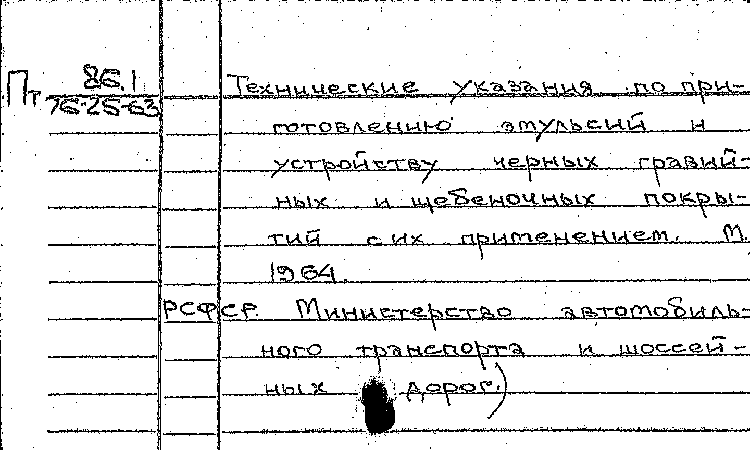 Пт 86.1
76-25-63
Технические указания по при-
готовлению эмульсий и
устройству черных гравий-
ных и щебеночных покры-
тий с их применением. М.
1964.
РСФСР. Министерство автомобиль-
ного транспорта и шоссей-
ных дорог.)